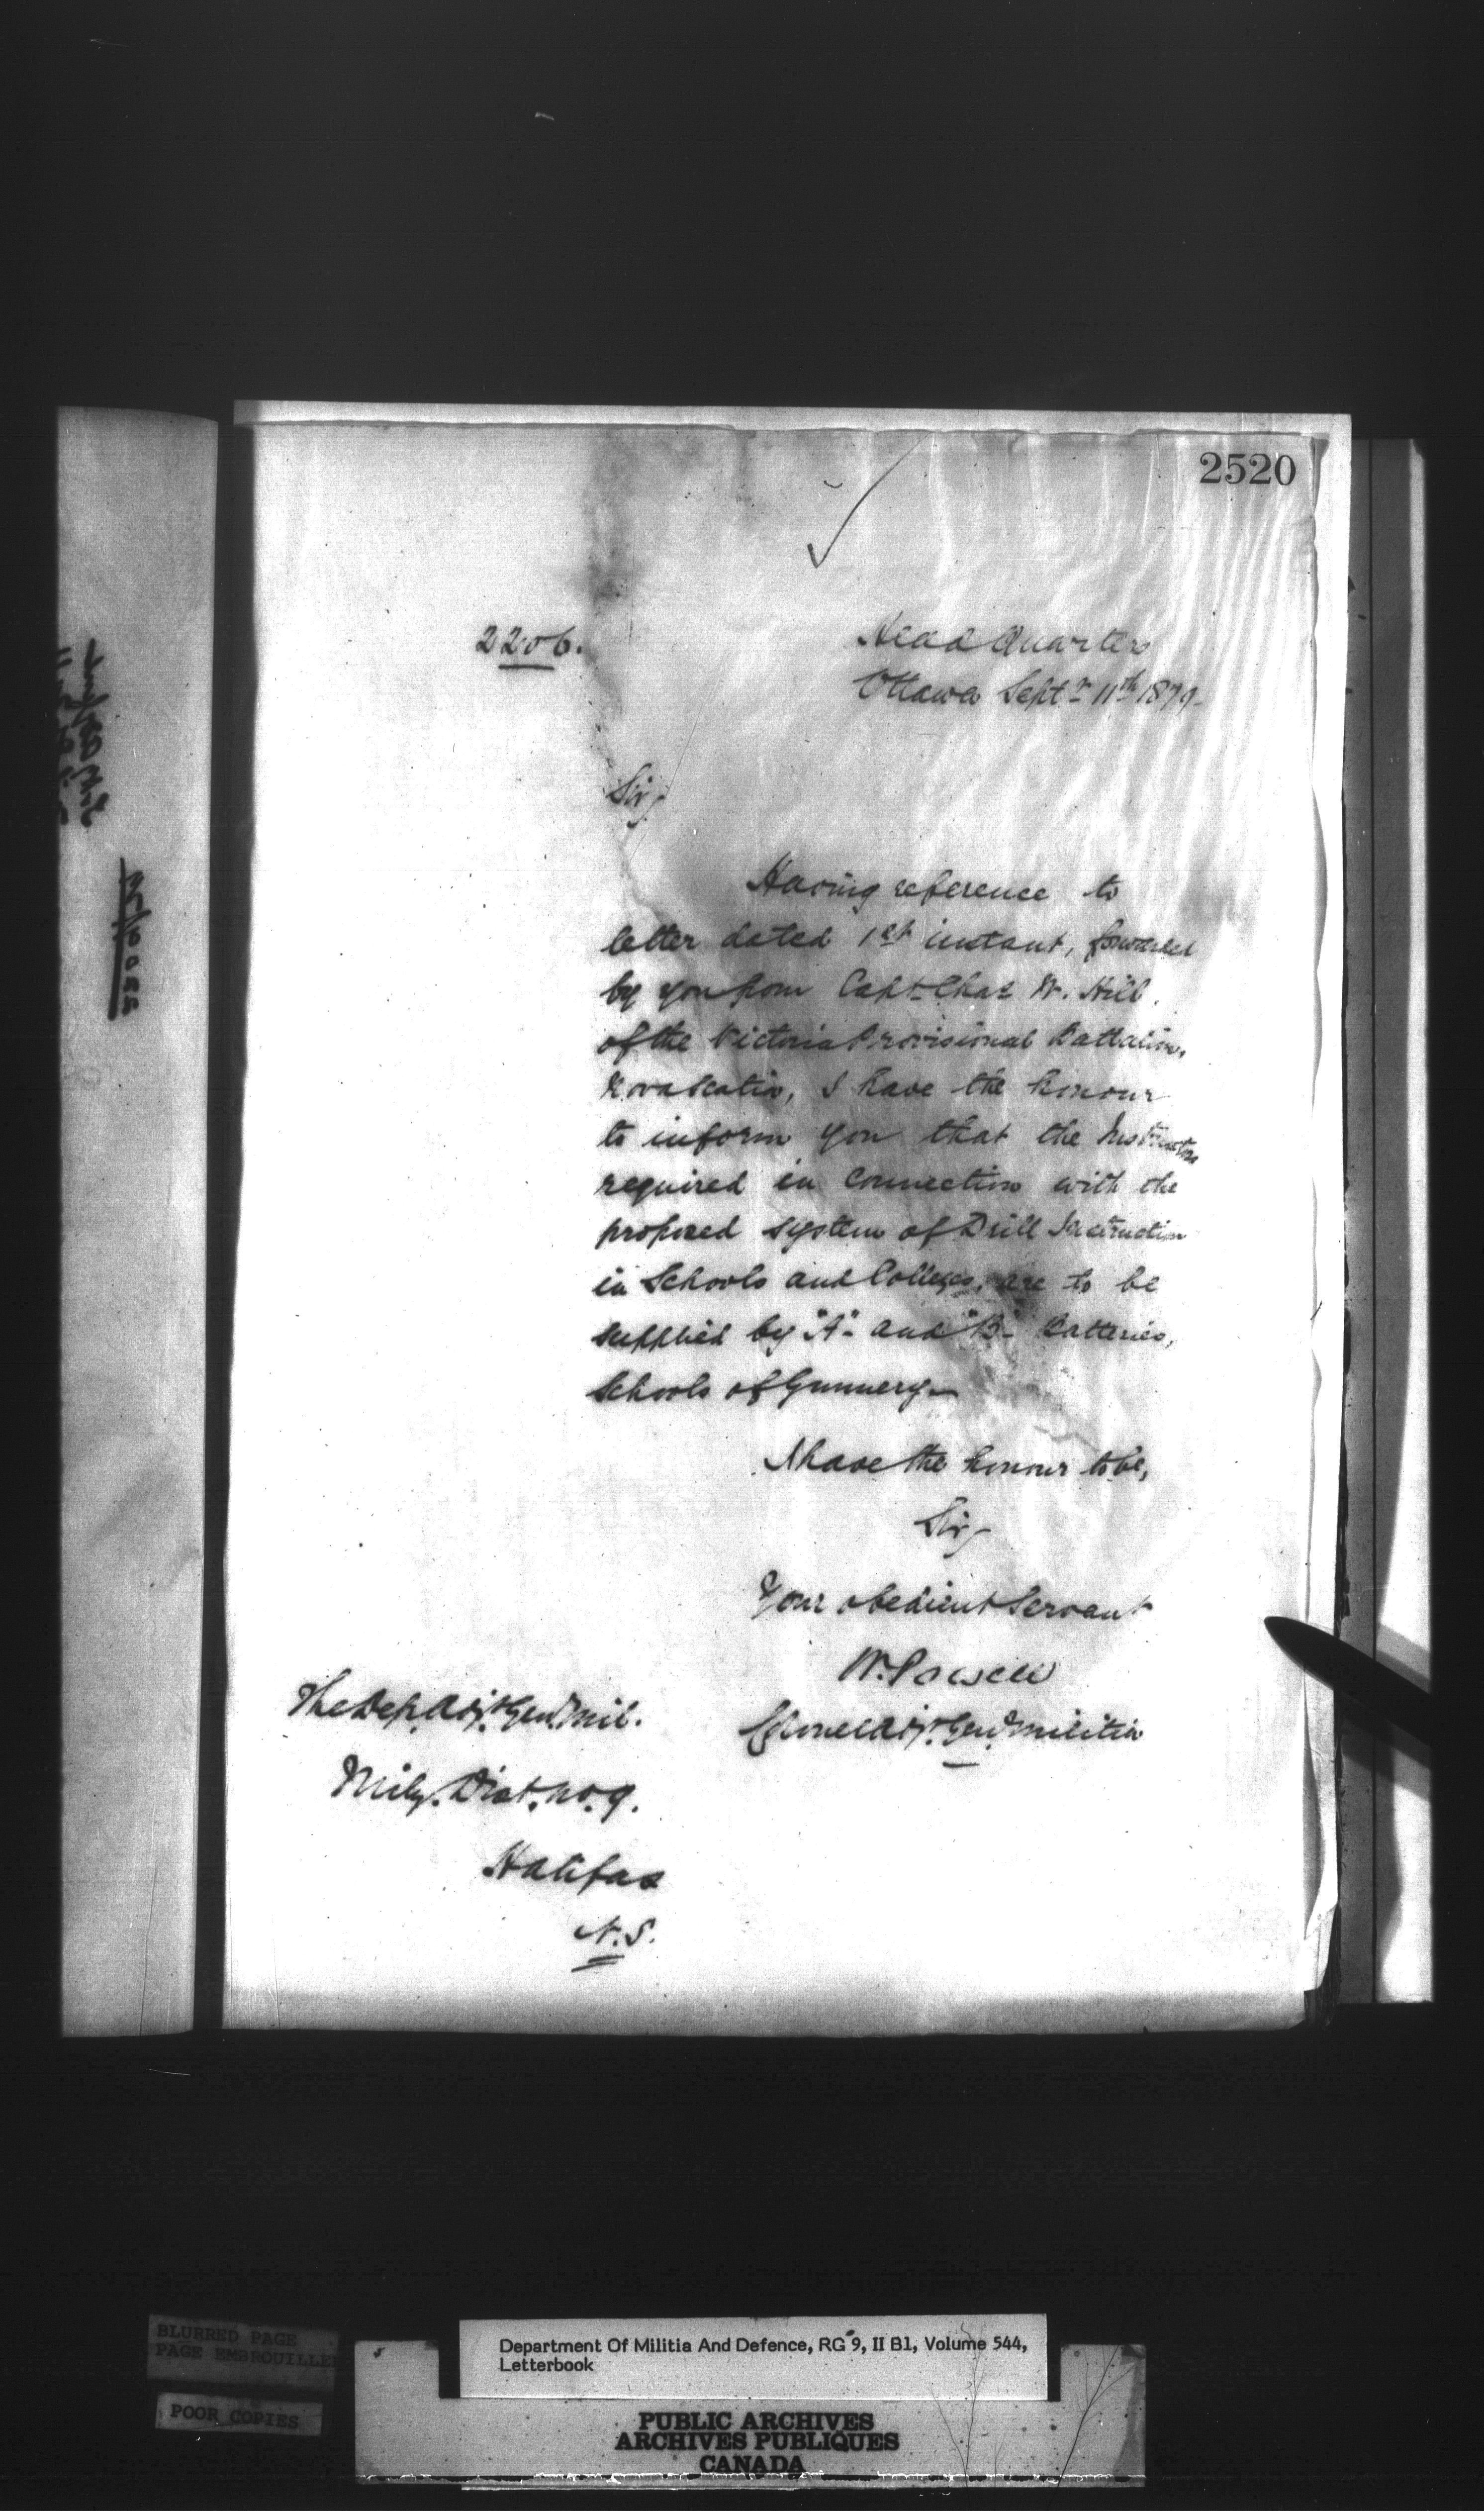 2520
2206.
Head Quarters
Ottawa Septr 11th 1879-
Sir,
Having reference to
letter dated 1st instant, forwarded
by you from Capt Chas W. Hill
of the Victoria Provisional Battalion,
Nova Scotia, I have the honour
to inform you that the Instructors
required in Connection with the
proposed system of Drill Instruction
in Schools and Colleges, are to be
supplied by "A" and "B" Batteries,
Schools of Gunnery-
I have the honour to be,
Sir,
Your obedient Servant
W. Powell
Colonel Adjt. Genl. Militia
The Dep. Adjt. Genl. Mil.
Mily. Dist. No. 9.
Halifax
N.S.
BLURRED PAGE
PAGE EMBROUILLEE
POOR COPIES
Department Of Militia And Defence, RG 9, II B1, Volume 544,
Letterbook
PUBLIC ARCHIVES
ARCHIVES PUBLIQUES
CANADA